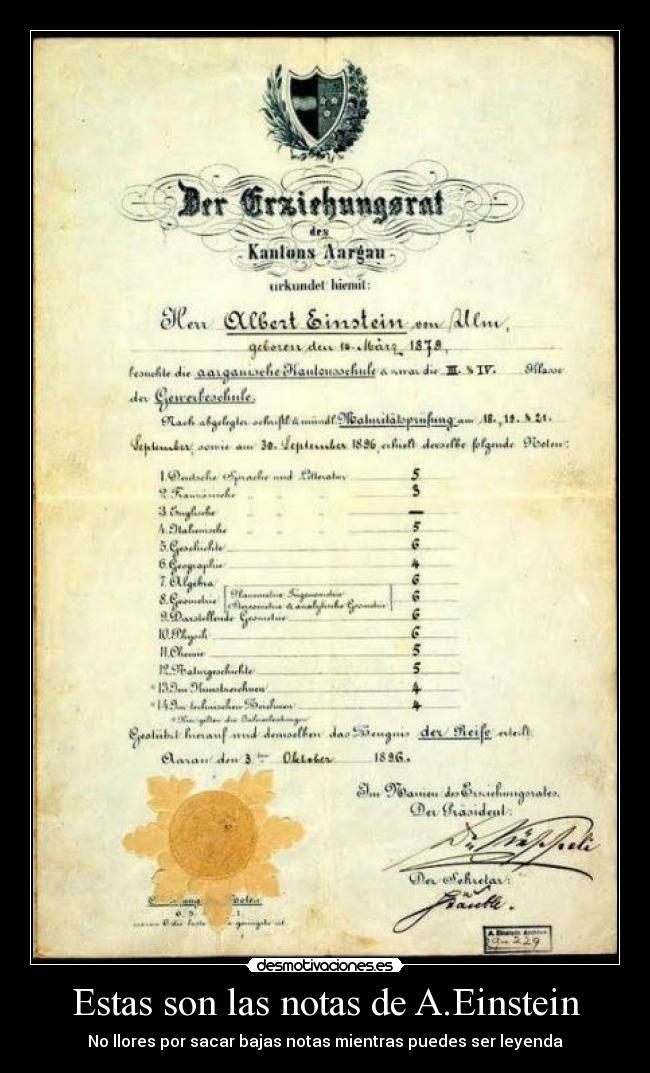 Der Erziehungsrat
des
Kantons Aargau
urkundet hiemit:
Herr Albert Einstein von Ulm,
geboren den 14. März 1879,
besuchte die aargauische Kantonsschule & zwar die III. & IV. Klasse
der Gewerbeschule.
Nach abgelegter schriftl. & mündl. Maturitätsprüfung am 18., 19. & 21.
September, sowie am 30. September 1896, erhielt derselbe folgende Noten:
1. Deutsche Sprache und Litteratur 5
2. Französische " " " 3
3. Englische " " " —
4. Italienische " " " 5
5. Geschichte 6
6. Geographie 4
7. Algebra 6
8. Geometrie [Planimetrie, Trigonometrie 6
Stereometrie & analytische Geometrie]
9. Darstellende Geometrie 6
10. Physik 6
11. Chemie 5
12. Naturgeschichte 5
* 13. Im Kunstzeichnen 4
* 14. Im technischen Zeichnen 4
* Hier gelten die Jahresleistungen.
Gestützt hierauf wird demselben das Zeugnis der Reife erteilt.
Aarau den 3.ten Oktober 1896.
Im Namen des Erziehungsrates,
Der Präsident:
Der Sekretär:
A. Einstein Archive
29-229
desmotivaciones.es
Estas son las notas de A.Einstein
No llores por sacar bajas notas mientras puedes ser leyenda